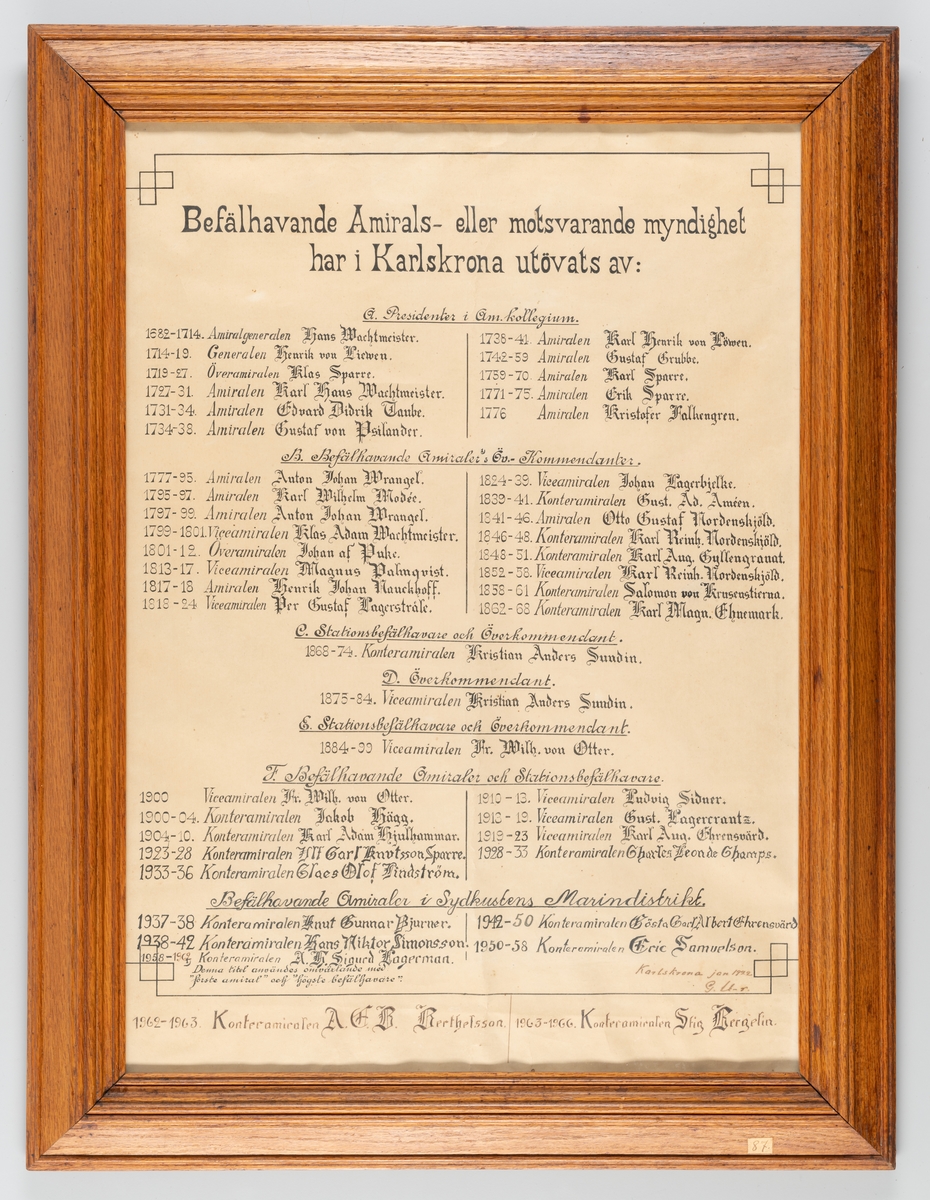 Befälhavande Amirals- eller motsvarande myndighet
har i Karlskrona utövats av:
A. Presidenter i Am.kollegium.
1682-1714. Amiralgeneralen Hans Wachtmeister.
1714-19. Generalen Henrik von Liewen.
1719-27. Överamiralen Klas Sparre.
1727-31. Amiralen Karl Hans Wachtmeister.
1731-34. Amiralen Edvard Didrik Taube.
1734-38. Amiralen Gustaf von Psilander.
1738-41. Amiralen Karl Henrik von Löwen.
1742-59. Amiralen Gustaf Grubbe.
1759-70. Amiralen Karl Sparre.
1771-75. Amiralen Erik Sparre.
1776 Amiralen Kristofer Falkengren.
B. Befälhavande Amiraler's Öv.- Kommendanter.
1777-95. Amiralen Anton Johan Wrangel.
1795-97. Amiralen Karl Wilhelm Modée.
1797-99. Amiralen Anton Johan Wrangel.
1799-1801. Viceamiralen Klas Adam Wachtmeister.
1801-12. Överamiralen Johan af Puke.
1813-17. Viceamiralen Magnus Palmqvist.
1817-18 Amiralen Henrik Johan Nauckhoff.
1818-24 Viceamiralen Per Gustaf Lagerstråle.
1824-39. Viceamiralen Johan Lagerbjelke.
1839-41. Konteramiralen Gust. Ad. Améen.
1841-46. Amiralen Otto Gustaf Nordenskjöld.
1846-48. Konteramiralen Karl Reinh. Nordenskjöld.
1848-51. Konteramiralen Karl Aug. Gyllengranat.
1852-58. Viceamiralen Karl Reinh. Nordenskjöld.
1858-61 Konteramiralen Salomon von Krusenstierna.
1862-68 Konteramiralen Karl Magn. Ehnemark.
C. Stationsbefälhavare och Överkommendant.
1868-74. Konteramiralen Kristian Anders Sundin.
D. Överkommendant.
1875-84. Viceamiralen Kristian Anders Sundin.
E. Stationsbefälhavare och Överkommendant.
1884-99 Viceamiralen Fr. Wilh. von Otter.
F. Befälhavande Amiraler och Stationsbefälhavare.
1900 Viceamiralen Fr. Wilh. von Otter.
1900-04. Konteramiralen Jakob Hägg.
1904-10. Konteramiralen Karl Adam Hjulhammar.
1923-28 Konteramiralen Ulf Carl Knutsson Sparre.
1933-36 Konteramiralen Claes Olof Lindström.
1910-13. Viceamiralen Ludvig Sidner.
1913-19. Viceamiralen Gust. Lagercrantz.
1919-23 Viceamiralen Karl Aug. Ehrensvärd.
1928-33 Konteramiralen Charles Leon de Champs.
Befälhavande Amiraler i Sydkustens Marindistrikt.
1937-38 Konteramiralen Knut Gunnar Bjurner.
1938-42 Konteramiralen Hans Niktor Simonsson.
1958-1962 Konteramiralen A. H. Sigurd Lagerman.
Denna titel användes omväxlande med
"förste amiral" och "högste befälhavare".
1942-50 Konteramiralen Gösta Carl Albert Ehrensvärd
1950-58 Konteramiralen Eric Samuelson.
Karlskrona jan
1962-1963. Konteramiralen A. E. B. Berthelsson.
1963-1966. Konteramiralen Stig Bergelin.
87